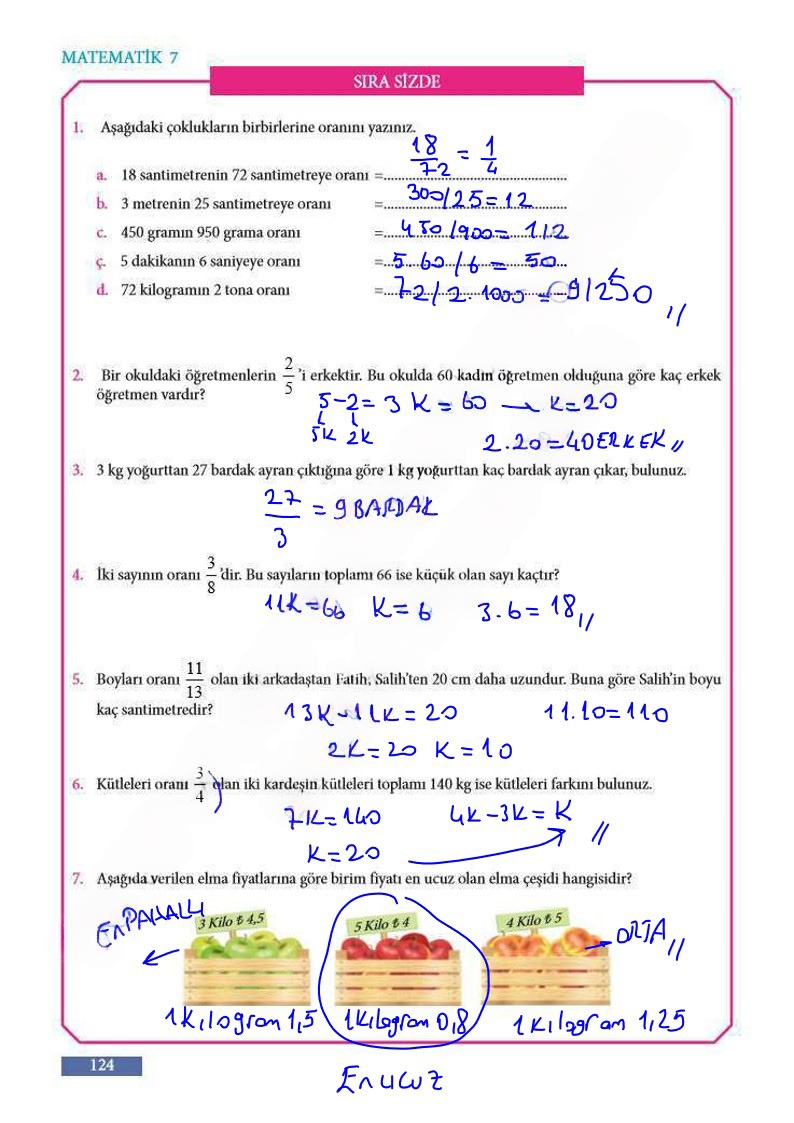 MATEMATİK 7
SIRA SİZDE
1. Aşağıdaki çoklukların birbirlerine oranını yazınız.
a. 18 santimetrenin 72 santimetreye oranı =.... 18/72 = 1/4
b. 3 metrenin 25 santimetreye oranı =.... 300/25=12
c. 450 gramın 950 grama oranı =.... 450/900= 1/2
ç. 5 dakikanın 6 saniyeye oranı =.... 5.60/6 = 50
d. 72 kilogramın 2 tona oranı =.... 72/2.1000 = 9/250 //
2. Bir okuldaki öğretmenlerin 2/5 'i erkektir. Bu okulda 60 kadın öğretmen olduğuna göre kaç erkek
öğretmen vardır?
5-2= 3 K = 60 → K=20
5K 2K
2.20=40 ERKEK //
3. 3 kg yoğurttan 27 bardak ayran çıktığına göre 1 kg yoğurttan kaç bardak ayran çıkar, bulunuz.
27/3 = 9 BARDAK
4. İki sayının oranı 3/8 'dir. Bu sayıların toplamı 66 ise küçük olan sayı kaçtır?
11K=66 K= 6 3.6= 18 //
5. Boyları oranı 11/13 olan iki arkadaştan Fatih, Salih'ten 20 cm daha uzundur. Buna göre Salih'in boyu
kaç santimetredir?
13K-11K= 20 11.10=110
2K=20 K=10
6. Kütleleri oranı 3/4 olan iki kardeşin kütleleri toplamı 140 kg ise kütleleri farkını bulunuz.
7K=140 4K-3K= K //
K=20
7. Aşağıda verilen elma fiyatlarına göre birim fiyatı en ucuz olan elma çeşidi hangisidir?
EnPAHALI
3 Kilo ₺ 4,5
5 Kilo ₺ 4
4 Kilo ₺ 5
ORTA //
1 Kilogram 1,5
1 Kilogram 0,8
1 Kilogram 1,25
124
En ucuz